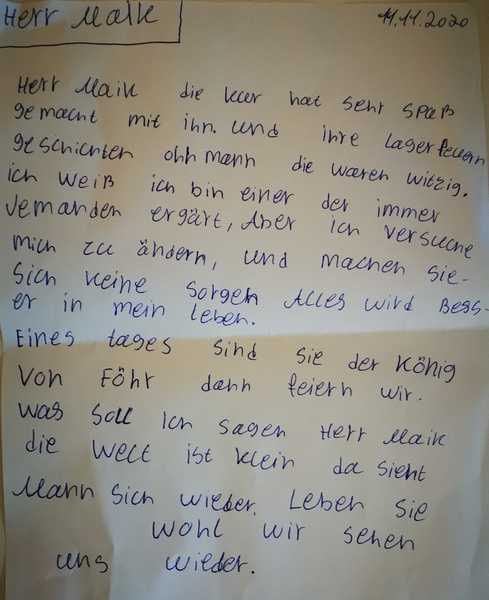 Herr Maik
11.11.2020
Herr Maik die kur hat sehr spaß
gemacht mit ihn. und ihre lagerfeuern
geschichten ohh mann die waren witzig.
ich weiß ich bin einer der immer
Jemanden ergärt, Aber ich versuche
mich zu ändern, und machen Sie-
Sich keine Sorgen Alles wird Bess-
er in mein leben.
Eines tages sind Sie der König
Von Föhr dann feiern wir.
Was Soll Ich sagen Herr Maik
die Welt ist klein da sieht
Mann Sich wieder. Leben Sie
wohl wir sehen
uns wieder.